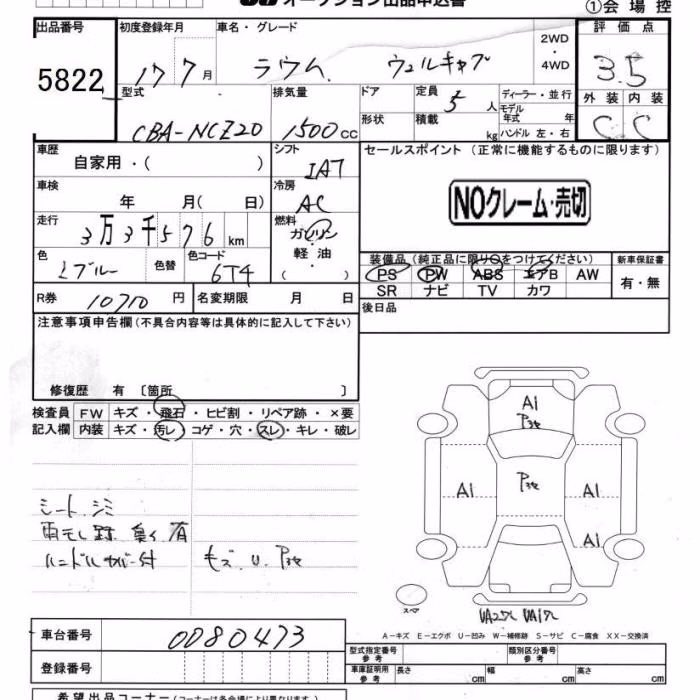 オークション出品申込書 ①会場控
出品番号 初度登録年月 車名・グレード 2WD・4WD 評価点
5822 17 7月 ラウム ウェルキャブ 3.5
型式 排気量 ドア 定員 5人 ディーラー・並行 外装 内装
モデル年式 年
CBA-NCZ20 1500cc 形状 積載 kg ハンドル 左・右 C C
車歴 自家用・( ) シフト IAT セールスポイント (正常に機能するものに限ります)
車検 年 月(日) 冷房 AC NOクレーム・売切
走行 3万3千576km 燃料 ガソリン・軽油・( )
装備品 (純正品に限り○をつけてください) 新車保証書
色 ミブルー 色替 色コード 6T4 PS PW ABS エアB AW 有・無
SR ナビ TV カワ
R券 10710円 名変期限 月 日 後日品
注意事項申告欄 (不具合内容等は具体的に記入して下さい)
修復歴 有 〔箇所 〕
検査員 FW キズ・飛石・ヒビ割・リペア跡・×要
記入欄 内装 キズ・汚レ・コゲ・穴・スレ・キレ・破レ
A1
A1 A1
A1
シート シミ
雨モレ跡 臭イ 有
ハンドルカバー付 キズ.U.
スペア
A-キズ E-エクボ U-凹み W-補修跡 S-サビ C-腐食 XX-交換済
車台番号 0080473
型式指定番号 参考 類別区分番号 参考
登録番号 車庫証明用 参考 長さ cm 幅 cm 高さ cm
希望出品コーナー (コーナーは各会場により異なります)